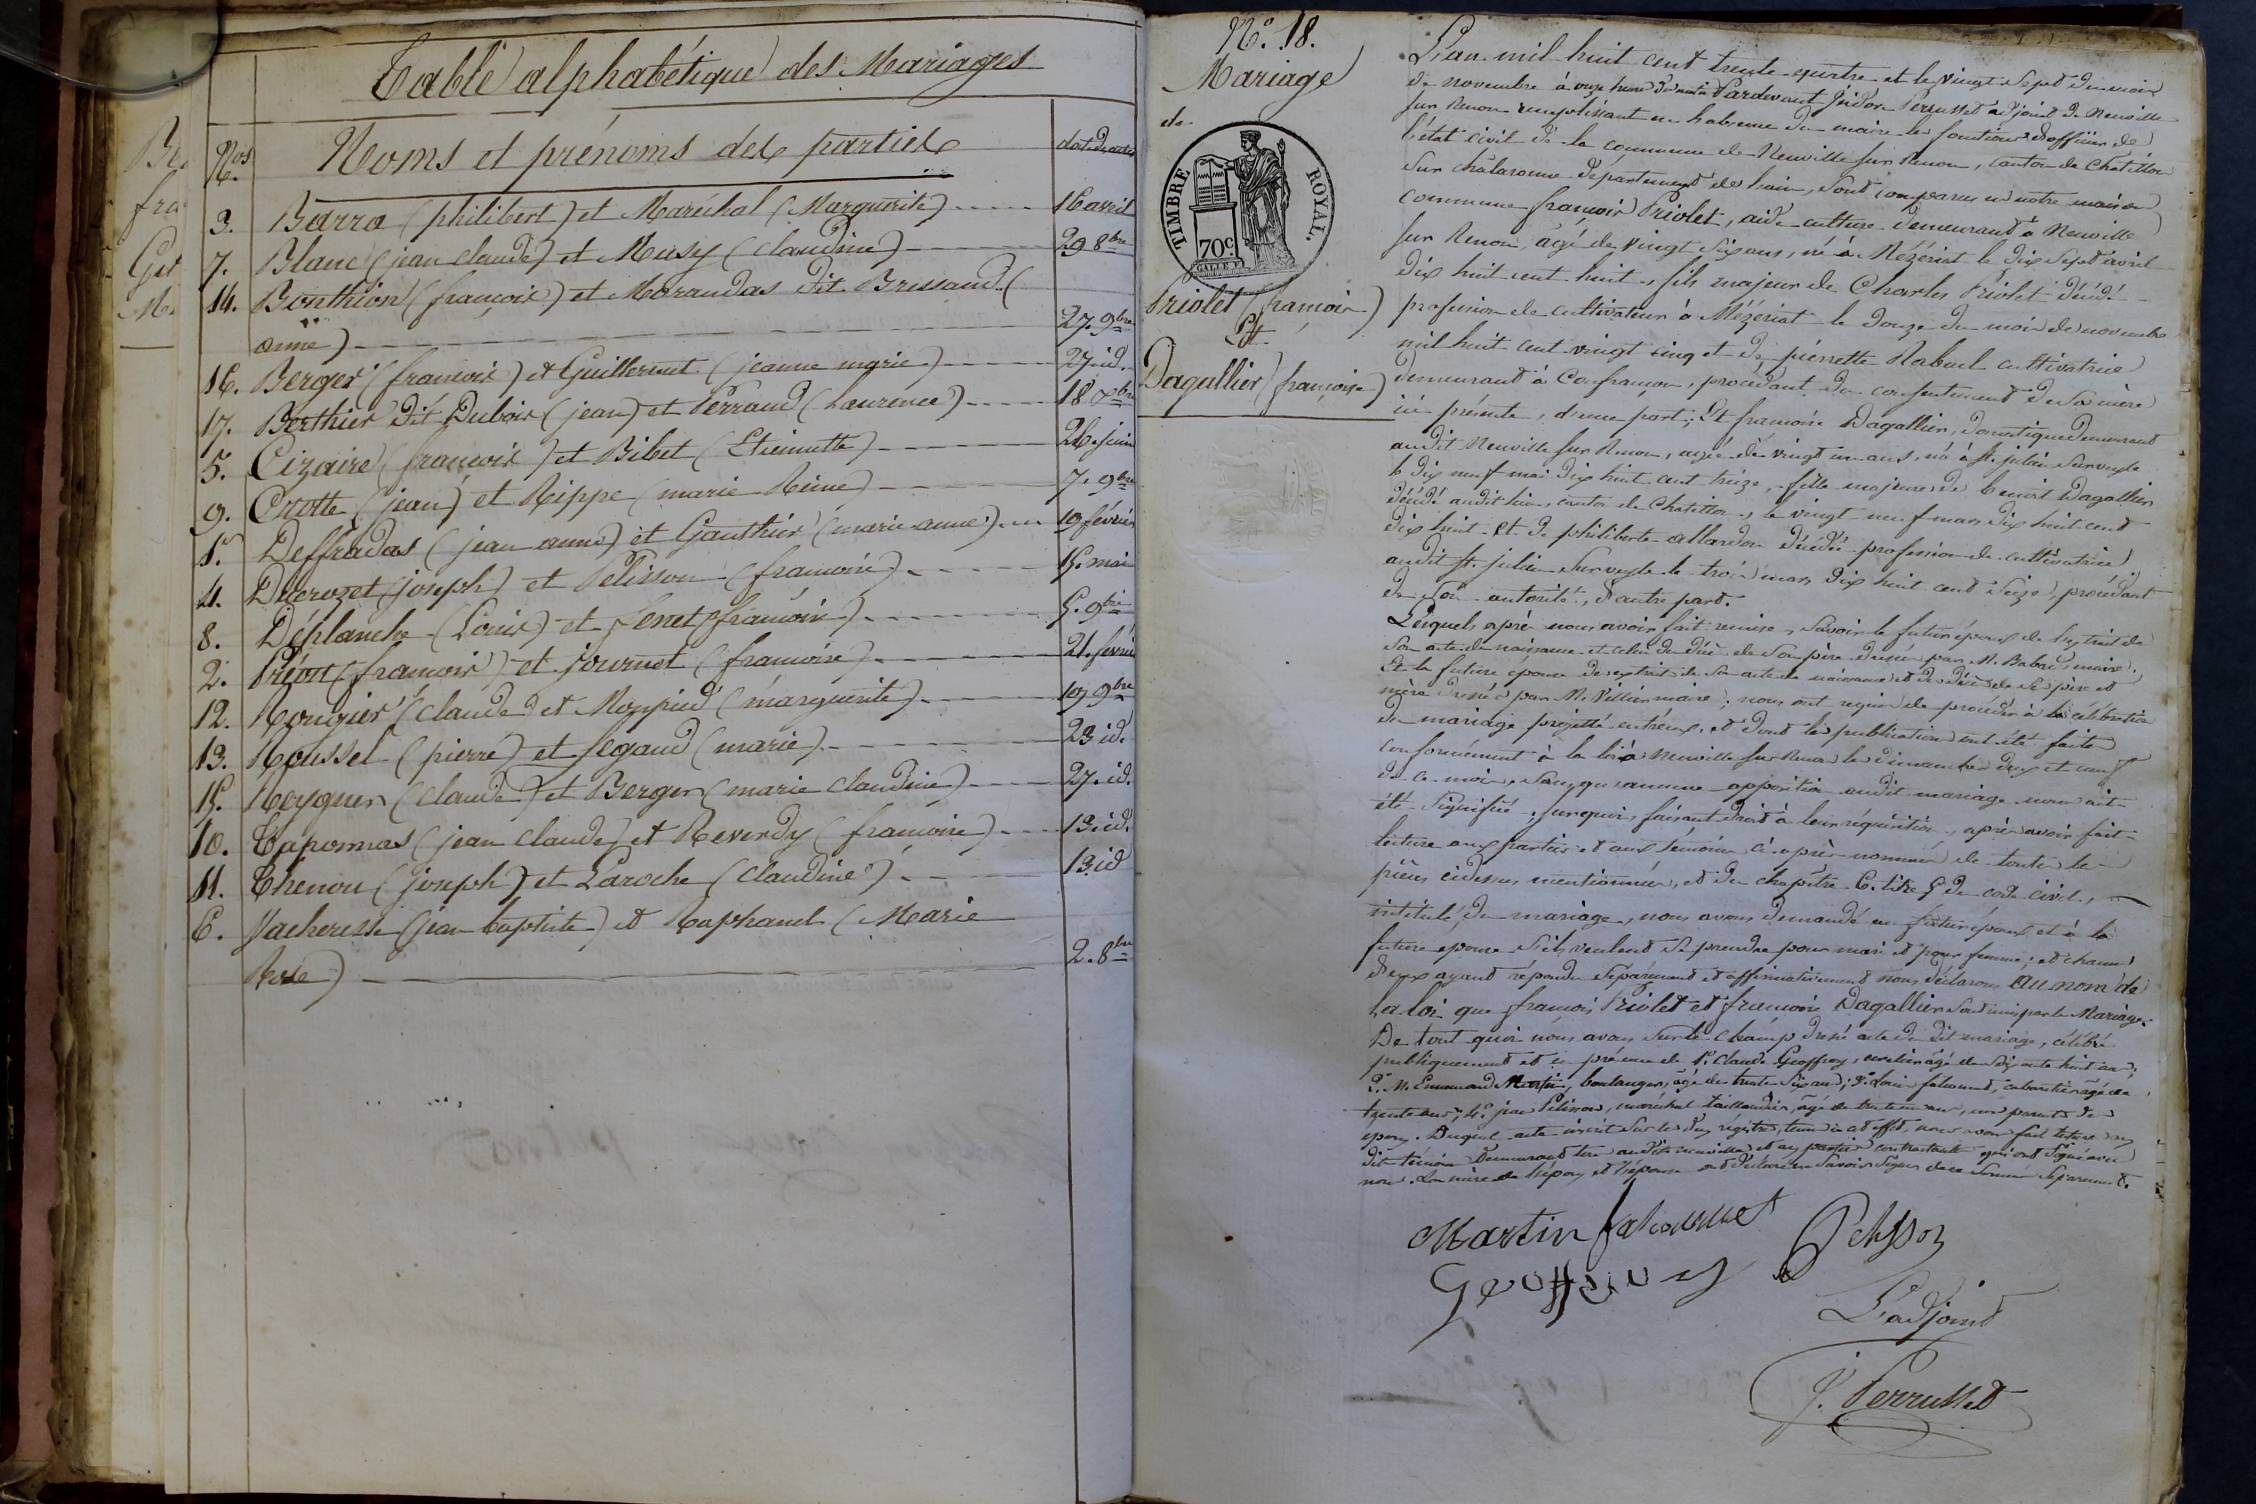 Table alphabétique des Mariages
Nos
Noms et prénoms des parties
date des actes
3. Barra (philibert) et Maréchal (Marguerite) 16 avril
7. Blanc (jean claude) et Musy (claudine) 29 8bre
14. Bonthion (françois) et Morandas dit Brissaud (
anne) 27. 9bre
16. Berger (francois) et Guillermet (jeanne marie) 27. id.
17. Berthier dit Dubois (jean) et Perraud (Laurence) 18 xbre
5. Cizaire (françois) et Bibet (Etiennette) 26. juin
9. Crotte (jean) et Rippe (marie Reine) 7. 9bre
1er Deffradas (jean anne) et Gauthier (marie-anne) 19 février
4. Ducrozet (joseph) et Pelisson (francoise) 15. mai
8. Déplanche (Louis) et Fenet (francoise) 5. 9bre
2. Préon (francois) et journet (francoise) 21. février
12. Rougier (claude) et Moypied (marguerite) 19 9bre
13. Roussel (pierre) et Segaud (marie) 23 id.
15. Reyguer (claude) et Berger (marie claudine) 27. id.
10. Taponnas (jean claude) et Reverdy (francoise) 13. id.
11. Thenon (joseph) et Laroche (claudine) 13 id
6. Vacheresse (jean baptiste) et Raphanel (Marie
Rose) 2. 8bre
No. 18.
Mariage
de
TIMBRE ROYAL.
70c.
Priolet (françois)
Et
Dagallier (françoise)
L'an mil huit cent trente-quatre et le vingt sept du mois
de novembre à onze heures du matin Pardevant Isidore Perrusset adjoint de Neuville
sur Renon remplissant en l'absence du maire les fonctions d'officier de
l'état civil de la commune de Neuville sur Renon, canton de Chatillon
sur chalaronne département de l'ain, sont comparus en notre maison
commune françois Priolet, aide culture demeurant à Neuville
sur Renon, âgé de vingt six ans, né à Mézériat le dix sept avril
dix huit cent huit, fils majeur de Charles Priolet décédé
profession de cultivateur à Mézériat le douze du mois de novembre
mil huit cent vingt cinq et de pierrette Rabuel cultivatrice
demeurant à Confrançon, procédant du consentement de sa mère
ici présente, d'une part; Et françoise Dagallier, domestique demeurant
audit Neuville sur Renon, agée de vingt un ans, née à St. julien sur veyle
le dix neuf mai dix huit cent treize, fille majeure de benoit Dagallier
décédé audit lieu, canton de Chatillon, le vingt neuf mars dix huit cent
dix huit et de philiberte allardon décédée profession de cultivatrice
audit St. julien sur veyle le trois mars dix huit cent seize, procédant
de son autorité, d'autre part.
Lesquels après nous avoir fait remise, savoir le futur époux de l'extrait de
son acte de naissance et celui de décès de son père dressés par M. maire;
Et la future épouse des extraits de son acte de naissance et de décès de ses père et
mère dressés par M. Villier maire; nous ont requis de procéder à la célébration
du mariage projetté entr'eux, et dont les publications ont été faites
conformément à la loi à Neuville sur Renon les dimanches deux et neuf
de ce mois, sans qu'aucune opposition audit mariage nous ait
été signifiée; sur quoi, faisant droit à leur réquisition, après avoir fait
lecture aux parties et aux témoins ci-après nommés de toutes les
pièces cidessus mentionnées, et du chapitre 6. titre 5 du code civil,
intitulé, du mariage, nous avons demandé au futur époux et à la
future epouse s'ils veulent se prendre pour mari et pour femme; et chacun
d'eux ayant répondu séparément et affirmativement nous déclarons au nom de
La loi que francois Priolet et francoise Dagallier sont unis par le Mariage.
De tout quoi nous avons sur le champ dressé acte du dit mariage, célébré
publiquement et en présence de 1° Claude Geoffroy, âgé de huit ans;
2° M. Emmand Martin, boulanger, âgé de trente six ans; 3° Louis falconnet, cabaretier âgé de
trente ans; 4° jean Pelisson, maréchal taillandier, âgé de trente un ans, non parents des
epoux. Duquel acte inscrit sur les deux régistres, tenus à cet effet, nous avons fait lecture aux
dits témoins demeurant tous audit neuville et aux parties contractantes qui ont signé avec
nous. La mère de l'époux et l'épouse ont déclaré ne savoir signer de ce sommés séparément.
Martin falconnet Pelisson
Geoffroy
L'adjoint
J. Perrusset